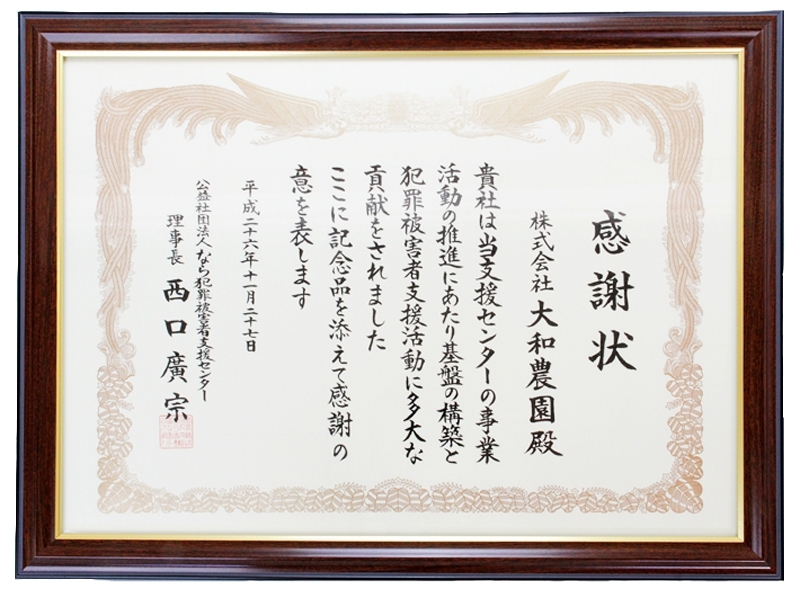 感謝状
株式会社 大和農園殿
貴社は当支援センターの事業
活動の推進にあたり基盤の構築と
犯罪被害者支援活動に多大な
貢献をされました
ここに記念品を添えて感謝の
意を表します
平成二十六年十一月二十七日
公益社団法人なら犯罪被害者支援センター
理事長 西口廣宗